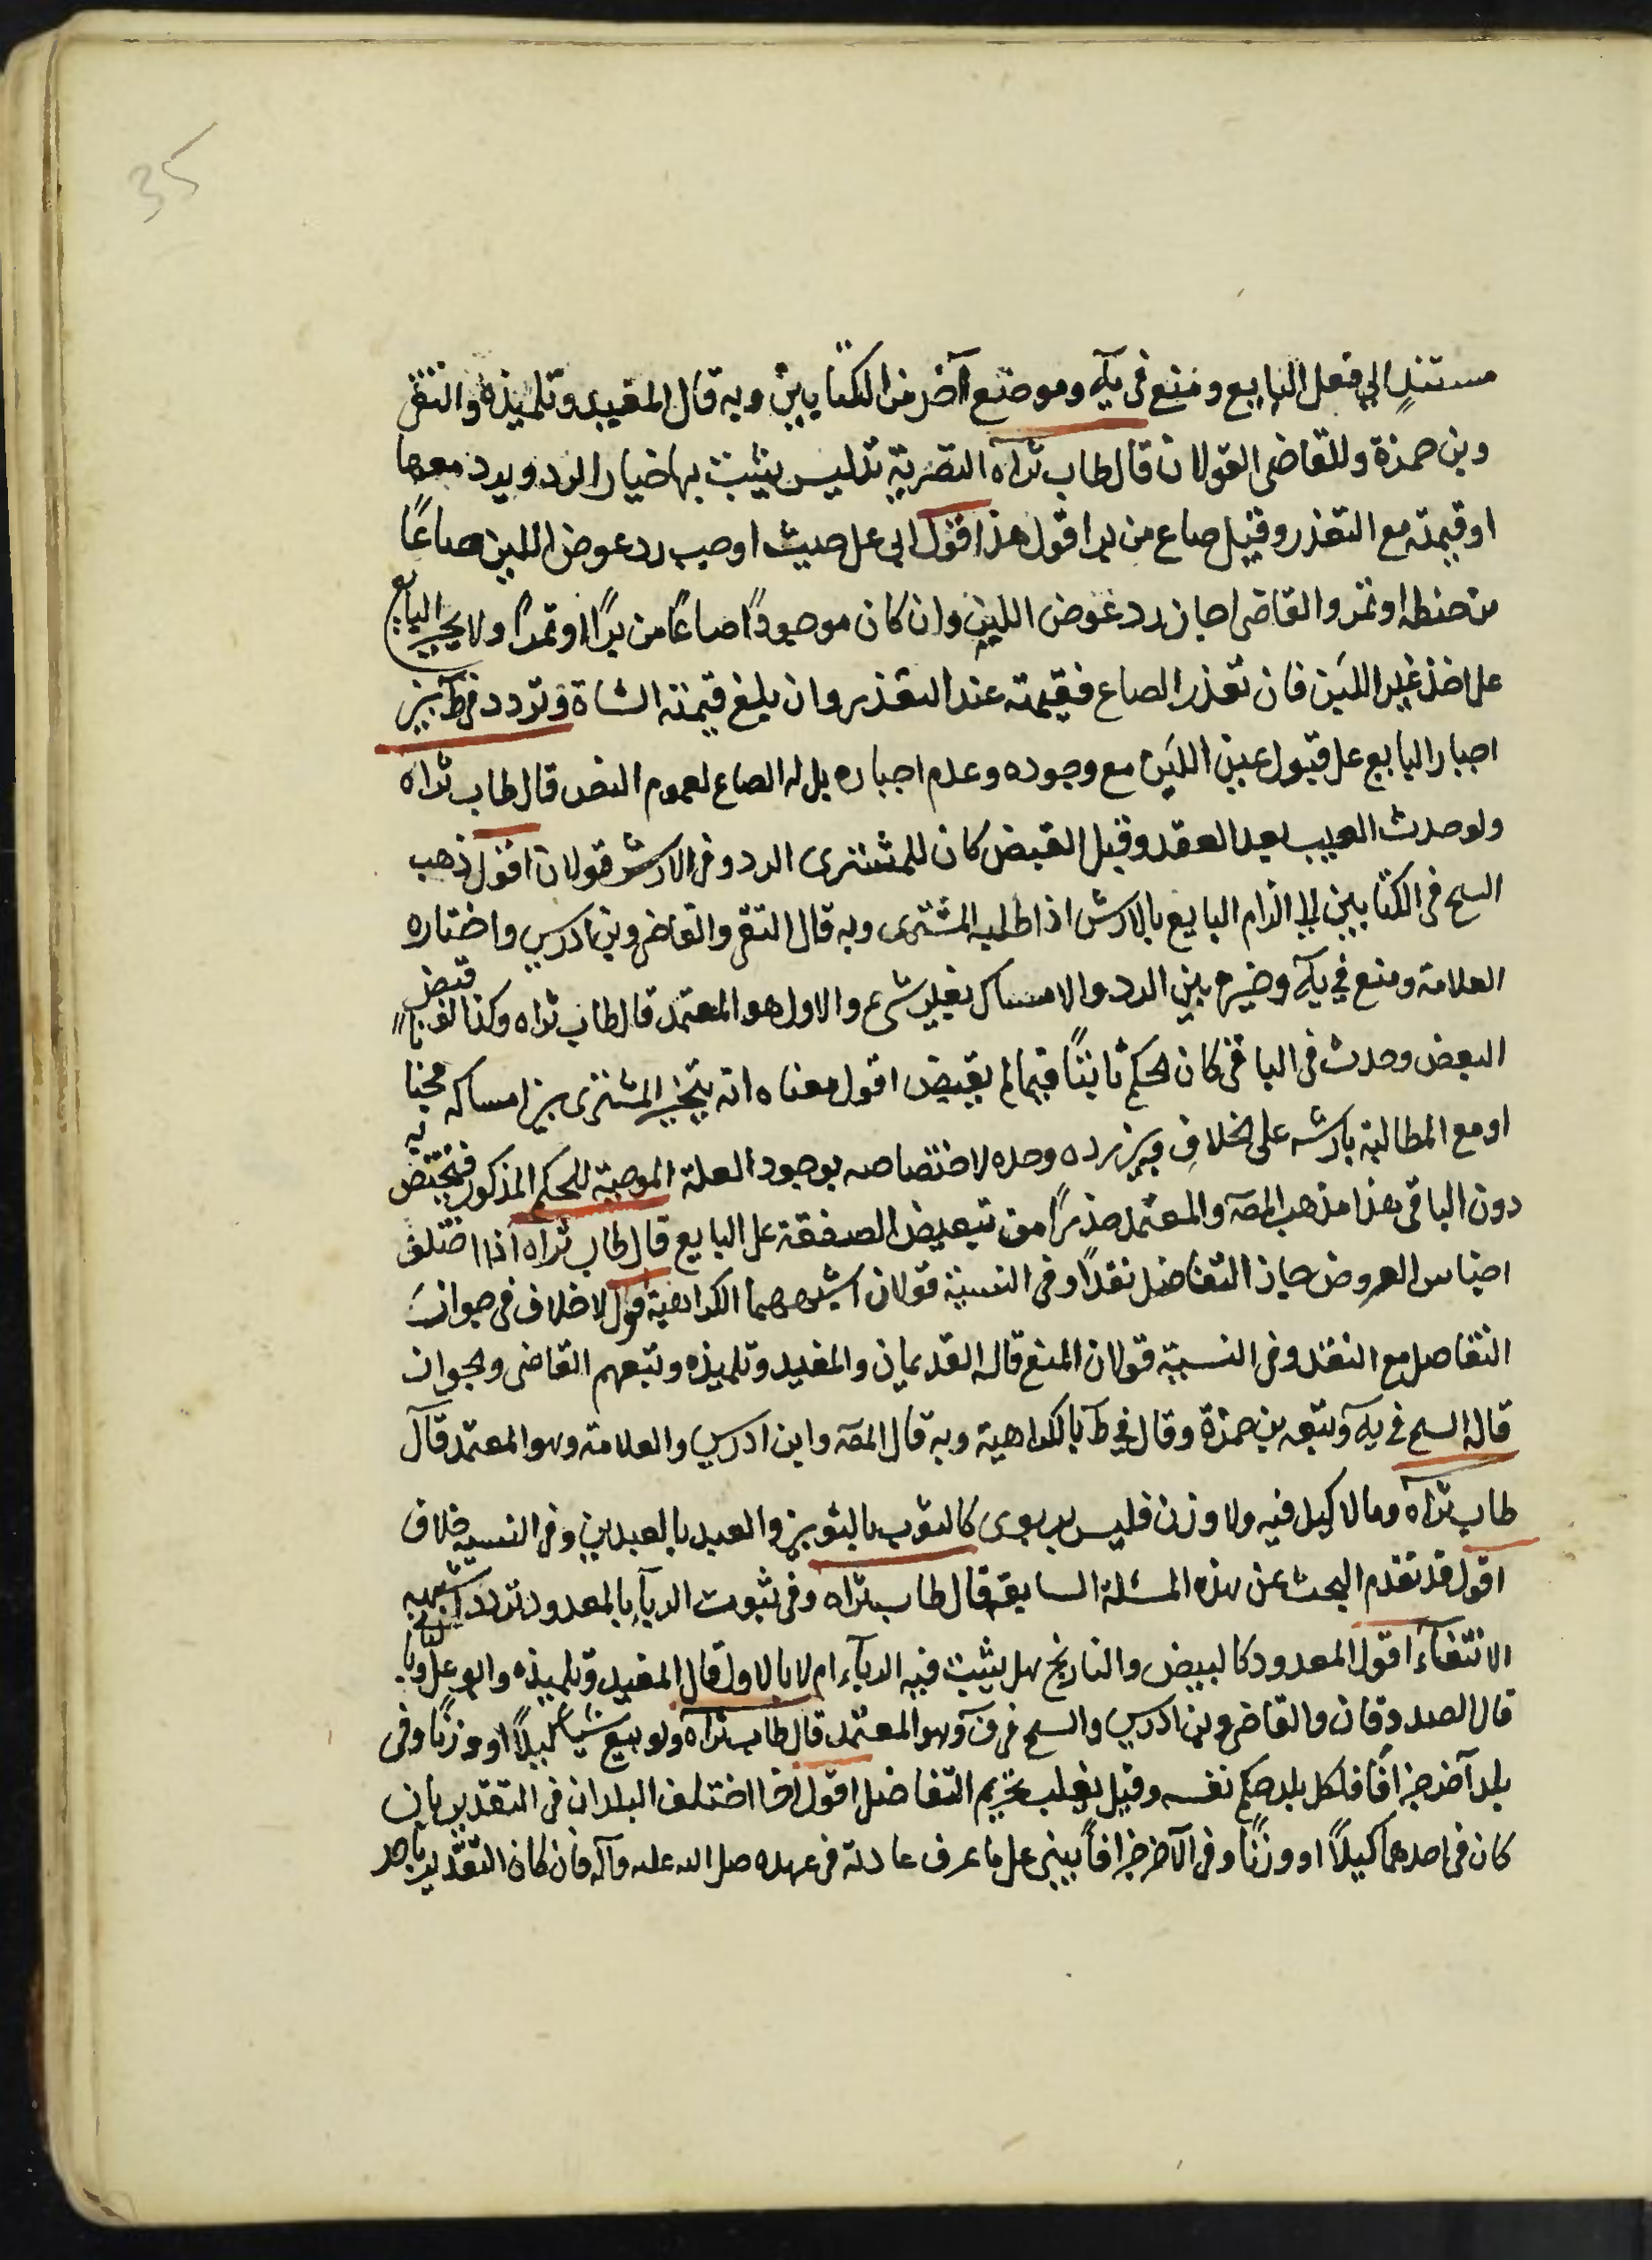 35
مستند الى فعل البايع ومنع فى يه وموضع آخر من الكتابين وبه قال المفيد وتلميذه والتقى
وبن حمزة وللقاضى القولان قال طاب ثراه التصرية تدليس يثبت بها خيار الرد ويرد معها
او قيمته مع التعذر وقيل صاع من بر اقول هذا قول ابى على حيث اوجب رد عوض اللبن صاعًا
من حنطه او تمر والقاضى اجاز رد عوض اللبن وان كان موجودًا صاعًا من برًا او تمرًا ولا يجبر البايع
على اخذ غير اللبن فان تعذر الصاع فقيمته عند التعذر وان بلغ قيمته الشاة وتردد فى ط بين
اجبار البايع على قبول عين اللبن مع وجوده وعدم اجباره بل له الصاع لعموم النص قال طاب ثراه
ولو حدث العيب بعد العقد وقبل القبض كان للمشترى الرد وفى الارش قولان اقول ذهب
الشيخ فى الكتابين الى الزام البايع بالارش اذا طلبه المشترى وبه قال التقى والقاضى وبن ادريس واختاره
العلامة ومنع في يه وخيره بين الرد والامساك بغير شىء والاول هو المعتمد قال طاب ثراه وكذا لو قبض
البعض وحدث فى الباقى كان الحكم ثابتًا فيما لم يقبض اقول معناه انه يتخير المشترى بين امساكه مجنا
او مع المطالبة بارشه على الخلاف وبين رده وحده لاختصاصه بوجود العلة الموجبة للحكم المذكور فيختص به
دون الباقى هذا مذهب المصه والمعتمد حذرًا من تبعيض الصفقة على البايع قال طاب ثراه اذا اختلف
اجناس العروض جاز التفاضل نقدًا وفى النسية قولان اشبههما الكراهية اقول لا خلاف فى جواز
التفاضل مع النقد وفى النسية قولان المنع قاله القديمان والمفيد وتلميذه وتبعهم القاضى والجواز
قاله الشيخ فى يه وتبعه بن حمزة وقال فى ط بالكراهية وبه قال المصه وابن ادريس والعلامة وهو المعتمد قال
طاب ثراه وما لا كيل فيه ولا وزن فليس بربوى كالثوب بالثوبين والعبد بالعبدين وفى النسيه خلاف
اقول قد تقدم البحث عن هذه المسئلة السابقة قال طاب ثراه وفى ثبوت الربآ بالمعدود تردد اشبهه
الانتفآء اقول المعدود كالبيض والنارنج هل يثبت فيه الربآء ام لا بالاول قال المفيد وتلميذه وابو على وبالثانى
قال الصدوقان والقاضى وبن ادريس والشيخ فى ف وهو المعتمد قال طاب ثراه ولو بيع شياء كيلًا او وزنًا وفى
بلد آخر جزافًا فلكل بلد حكم نفسه وقيل يغلب تحريم التفاضل اقول اذا اختلف البلدان فى التقدير بان
كان فى احدهما كيلًا او وزنًا وفى الآخر جزافًا يبنى على ما عرف عادته فى عهده صلى الله عليه وآله فان كان التقدير باحد